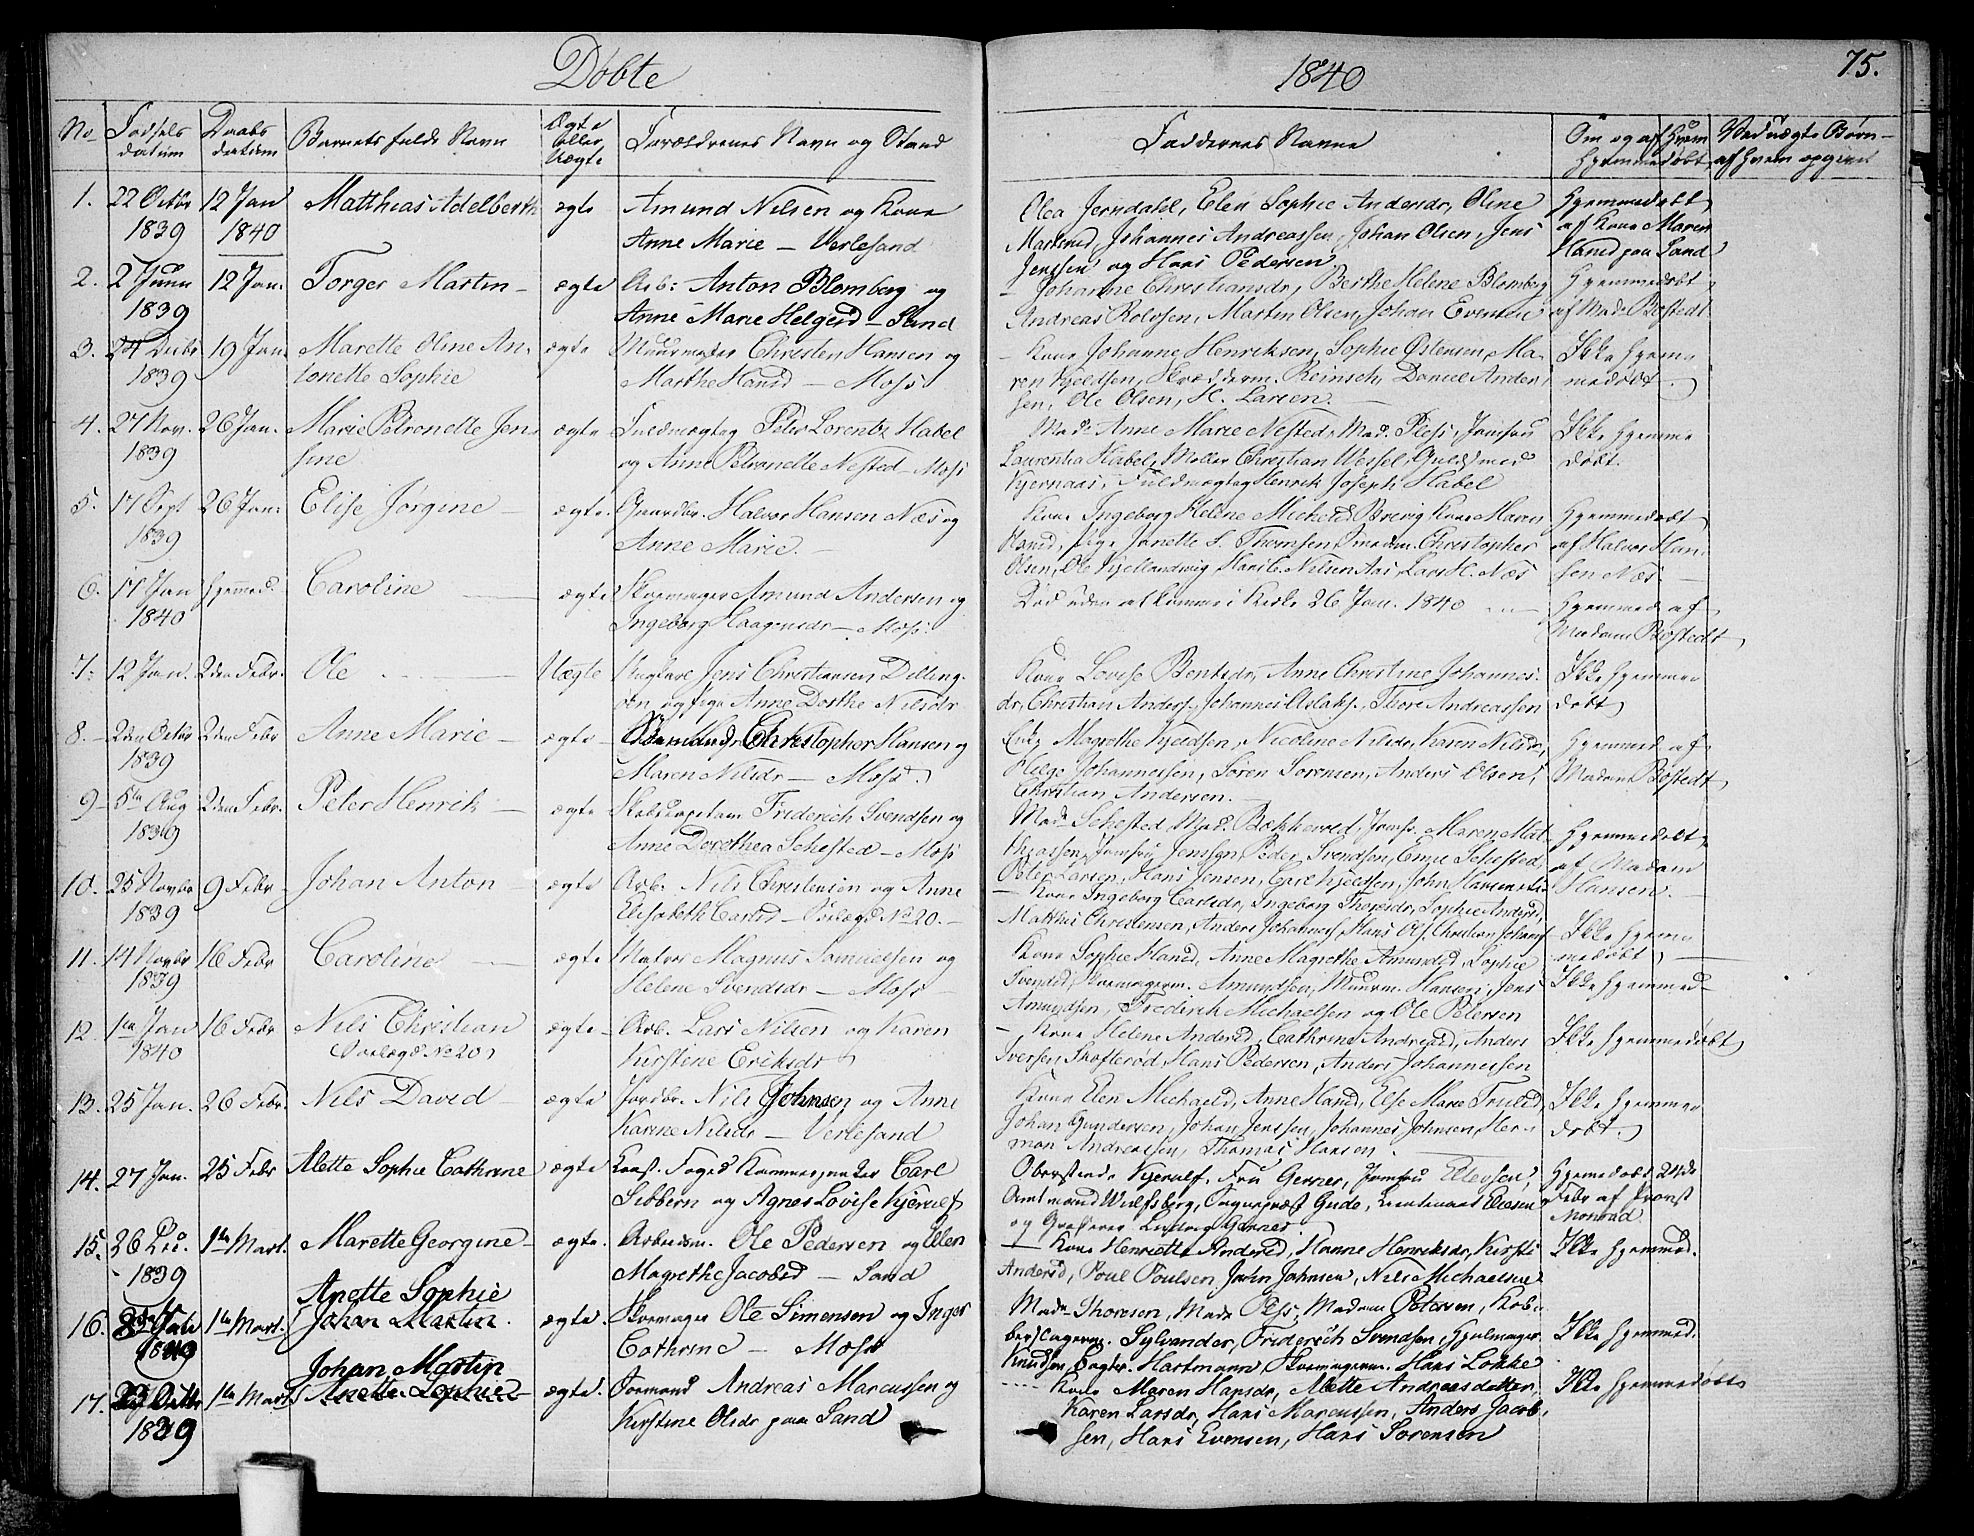 Døbte
1840
75.
No Fødsels datum Daabs datum Barnets fulde Navn Ægte eller Uægte Forældrenes Navn og Stand Faddernes Navne Om og af Hvem Hjemmedøbt Ved uægte Børn af Hvem opgivet
1. 22 Octbr 1839 12 Jan 1840 Matthias Adelberth ægte Amund Nilsen og Kone
Anne Marie – Verlesand
Olea Jerndahl, Elen Sophie Andersdr, Oline
Johannes Andreassen, Johan Olsen, Jens
Jenssen og Hans Pedersen
Hjemmedøbt
af Kone Maren
Hansd paa Sand
2. 2 Juni 1839 12 Jan. Torger Martin – ægte Arb: Anton Blomberg og
Anne Marie Helgesd – Sand
Johanne Christiansdr, Berthe Helene Blomberg
Andreas Rolvsen, Martin Olsen, Johan Evensen
Hjemmedøbt
af Mad. Bostedt
3. 24 Decbr 1839 19 Jan. Marette Oline An-
tonette Sophie
ægte Muurmester Christen Hansen og
Marthe Hansd – Moss
Kone Johanne Henriksen, Sophie Østensen, Ma-
ren Kjeldsen, Skrædderm. Reinsch, Daniel Ander-
sen, Ole Olsen, H. Larsen.
Ikke hjemme
medøbt.
4. 27 Nov. 1839 26 Jan. Marie Petronelle Jen-
sine
ægte Fuldmægtig Peter Lorentz Habel
og Anne Petronelle Nested – Moss
Mad. Anne Marie Nested, Mad. Pless, Jomfru
Laurentia Habel, Møller Christian Wessel, Guldsmed
Kjernaas, Fuldmægtig Henrik Joseph Habel
Ikke hjemme
døbt.
5. 17 Sept 1839 26 Jan. Elise Jørgine – ægte. Gaardbr. Halvor Hansen Næs og
Anne Marie. –
Kone Ingeborg Helene Michelsd Brevig Kone Maren
Hansd, pige Janette S. Thomsen, Christopher
Olsen, Ole Kjellandsvig, Hans C. Nilsen Aas, Lars H. Næs
Hjemmedøbt
af Halvor Han-
sen Næs.
6. 17 Jan 1840 hjemmed. Caroline ægte Skomager Amund Andersen og
Ingeborg Haagensdr – Moss.
Død uden at komme i Kirke 26 Jan. 1840
Hjemmed. af
Madam Bostedt
7. 12 Jan. 2den Febr. Ole Uægte Ungkarl Jens Christiansen Dilling-
øen og pige Anne Dorthe Nilsdr
Kone Lovise Bentsdr, Anne Christine Johannes-
dr, Christian Anders., Johannes Aslaks., Thore Andreassen
Ikke hjemme
døbt
8. 2den Octbr 1839 2den Febr Anne Marie – ægte Christopher Hansen og
Maren Nilsdr – Moss.
Magrethe Kjeldsen, Nicoline Nilsdr, Karen Nilsdr,
Helge Johannessen, Søren Sørensen, Anders Olsen,
Christian Andersen.
Hjemmed. af
Madam Bostedt
9 5te Aug 1839 2den Febr. Peter Henrik – ægte Skibscapitain Friderich Svendsen og
Anne Dorothea Sehested – Moss
Mad. Sehested, Mad. Bekkevold, Jomf. Maren Mat-
thiassen, Jomfru Jenssen, Peder Svendsen, Enne Sehested,
Peter Larsen, Hans Jensen, Carl Kjeldsen, John Hansen
Hjemmedøbt
af Madam
Hansen.
10. 25 Novbr 1839 9 Febr Johan Anton – ægte Arb. Nils Christensen og Anne
Elisabeth Carlsd – Værlegd No 20. –
Kone Ingeborg Carlsdr, Ingeborg Thoresdr, Sophie Andersd,
Matthis Christensen, Anders Johannes, Hans Ols., Christian Johans
Ikke hjemme
medøbt
11. 14 Novbr 1839 16 Febr Caroline ægte Matros Magnus Samuelsen og
Helene Svendsdr – Moss
Kone Sophie Hansd, Anne Magrethe Amundsd, Sophie
Svendsd, Skomagerm. Amundsen, Muurm. Hansen, Jens
Amundsen, Frederik Michaelsen og Ole Petersen
Ikke hjemmed
12. 1te Jan 1840 16 Febr Nils Christian
Værlegd. No 20
ægte – Arb. Lars Nilsen og Karen
Kirstine Eriksdr
Kone Helene Andersd, Cathrine Andreasd, Anders
Iversen Skofterød, Hans Pedersen, Anders Johannessen
Ikke hjemmedøbt
13. 25 Jan. 26 Febr. Nils David – ægte Jordbr. Nils Johnsen og Anne
Karine Nilsdr – Verlesand
Kone Elen Michaelsd, Anne Hansd, Else Marie Trulsd,
Johan Gundersen, Johan Jenssen, Johannes Johnsen, Her-
man Andreassen, Thomas Hansen.
Ikke hjemme
døbt.
14. 27 Jan. 25 Febr Alette Sophie Cathrine ægte Const. Foged Kammerjunker Carl
Sibbern og Agnes Lovise Kjerulf
Oberstinde Kjerulf, Fru Gerner, Jomfru Ellevsen,
Amtmand Wulfsberg, Sognepræst Gude, Lieutenant
og Grosserer Ludvig Gerner
Hjemmedøbt 24de
Febr af Provst
Monrad
15. 26 Dec. 1839 1te Mart. Marette Georgine – ægte. Arbeidsm. Ole Pedersen og Ellen
Magrethe Jacobsd – Sand
Kone Henriette Andersd, Hanne Henriksdr, Kirsti
Andersd, Poul Poulsen, John Johnsen, Nils Michaelsen
Ikke hjemmed.
Anette Sophie
16. 1840 1te Mart. Johan Martin. ægte. Skomager Ole Simensen og Inger
Cathrine – Moss
Mad. Thoresen, Mad. Pess, Madam Petersen, Kob-
berslagerm. Sylvander, Friderich Svendsen, Hjulmager
Knudsen, Bagter. Hartmann, Skomagerm. Hans Løkke
Ikke hjemmed.
Johan Martin
17. Octbr 1839 1te Mart Anette Sophie – ægte. Formand Andreas Marcussen og
Kirstine Olsdr paa Sand
Kone Maren Hansdr, Alette Andreasdatter,
Karen Larsdr, Hans Marcussen, Anders Jacob-
sen, Hans Evensen, Hans Sørensen
Ikke hjemmedøbt